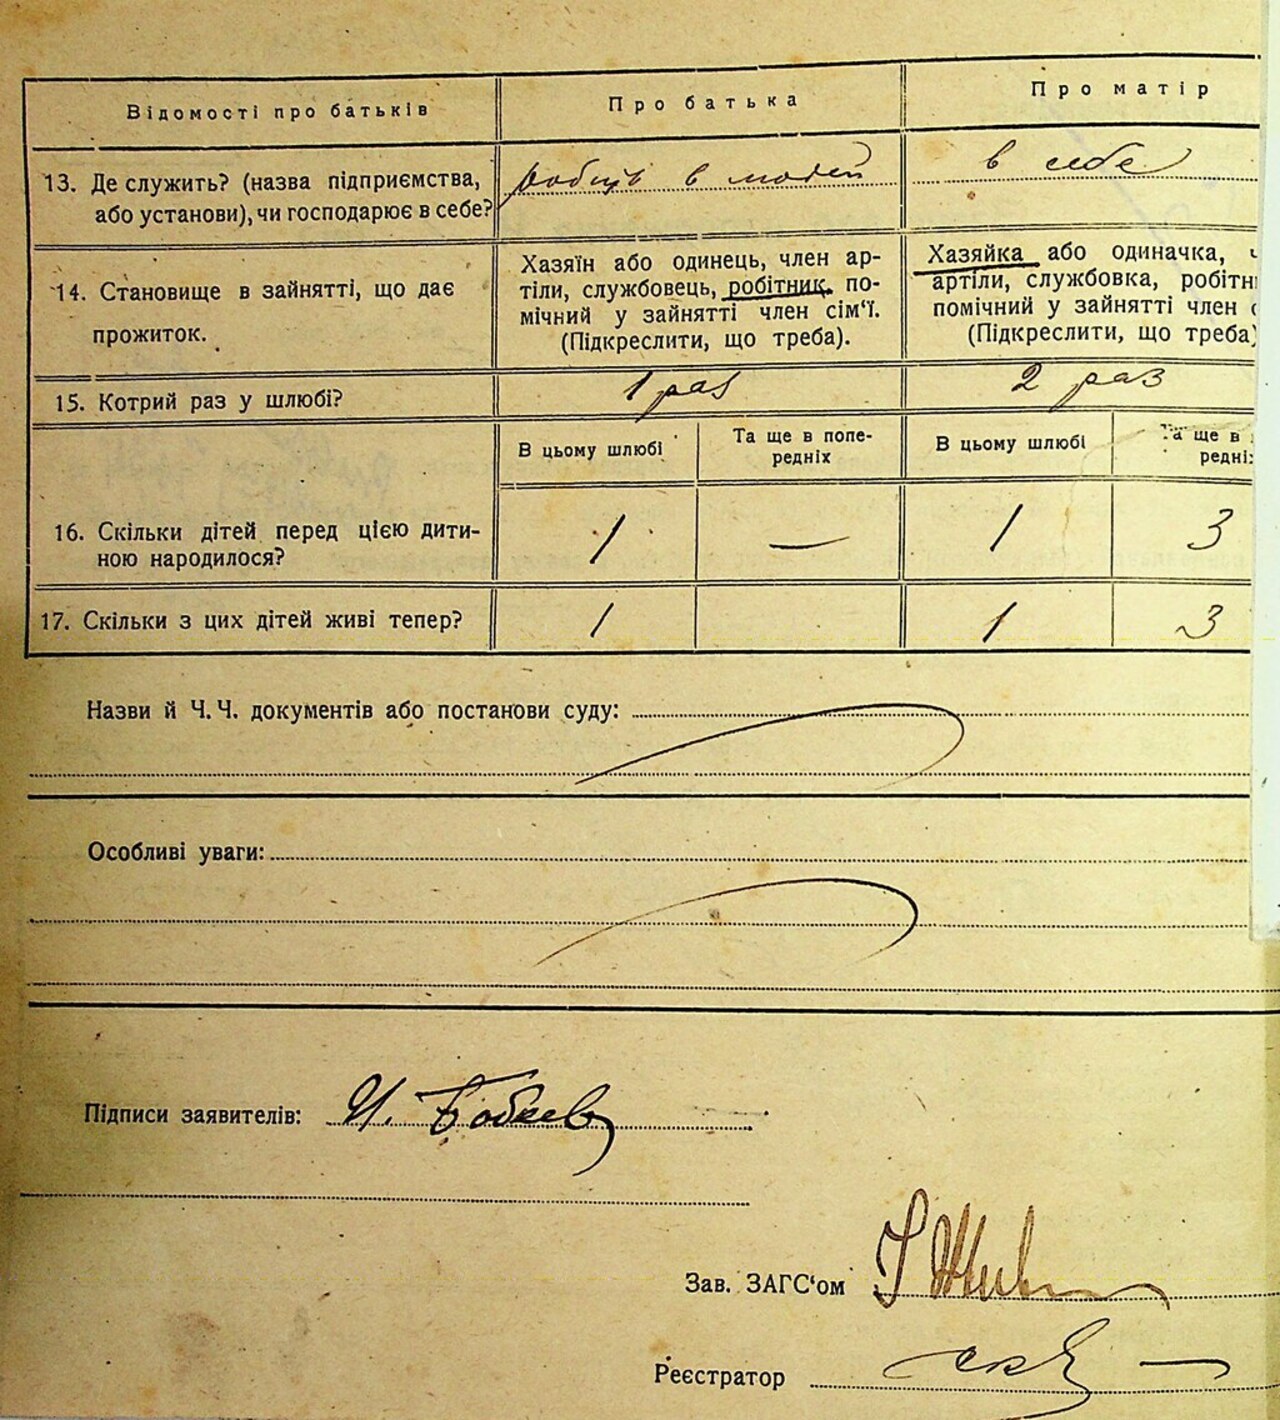 Відомості про батьків
Про батька
Про матір
13. Де служить? (назва підприємства,
або установи), чи господарює в себе?
в людей
в себе
14. Становище в зайнятті, що дає
прожиток.
Хазяїн або одинець, член ар-
тілі, службовець, робітник, по-
мічний у зайнятті член сім‘ї.
(Підкреслити, що треба).
Хазяйка або одиначка, ч
артілі, службовка, робітн
помічний у зайнятті член с
(Підкреслити, що треба)
15. Котрий раз у шлюбі?
1 раз
2 раз
В цьому шлюбі
Та ще в попе-
редніх
В цьому шлюбі
Та ще в
редніх
16. Скільки дітей перед цією дити-
ною народилося?
1
—
1
3
17. Скільки з цих дітей живі тепер?
1
1
3
Назви й Ч. Ч. документів або постанови суду:
Особливі уваги:
Підписи заявителів:
Зав. ЗАГС‘ом
Реєстратор